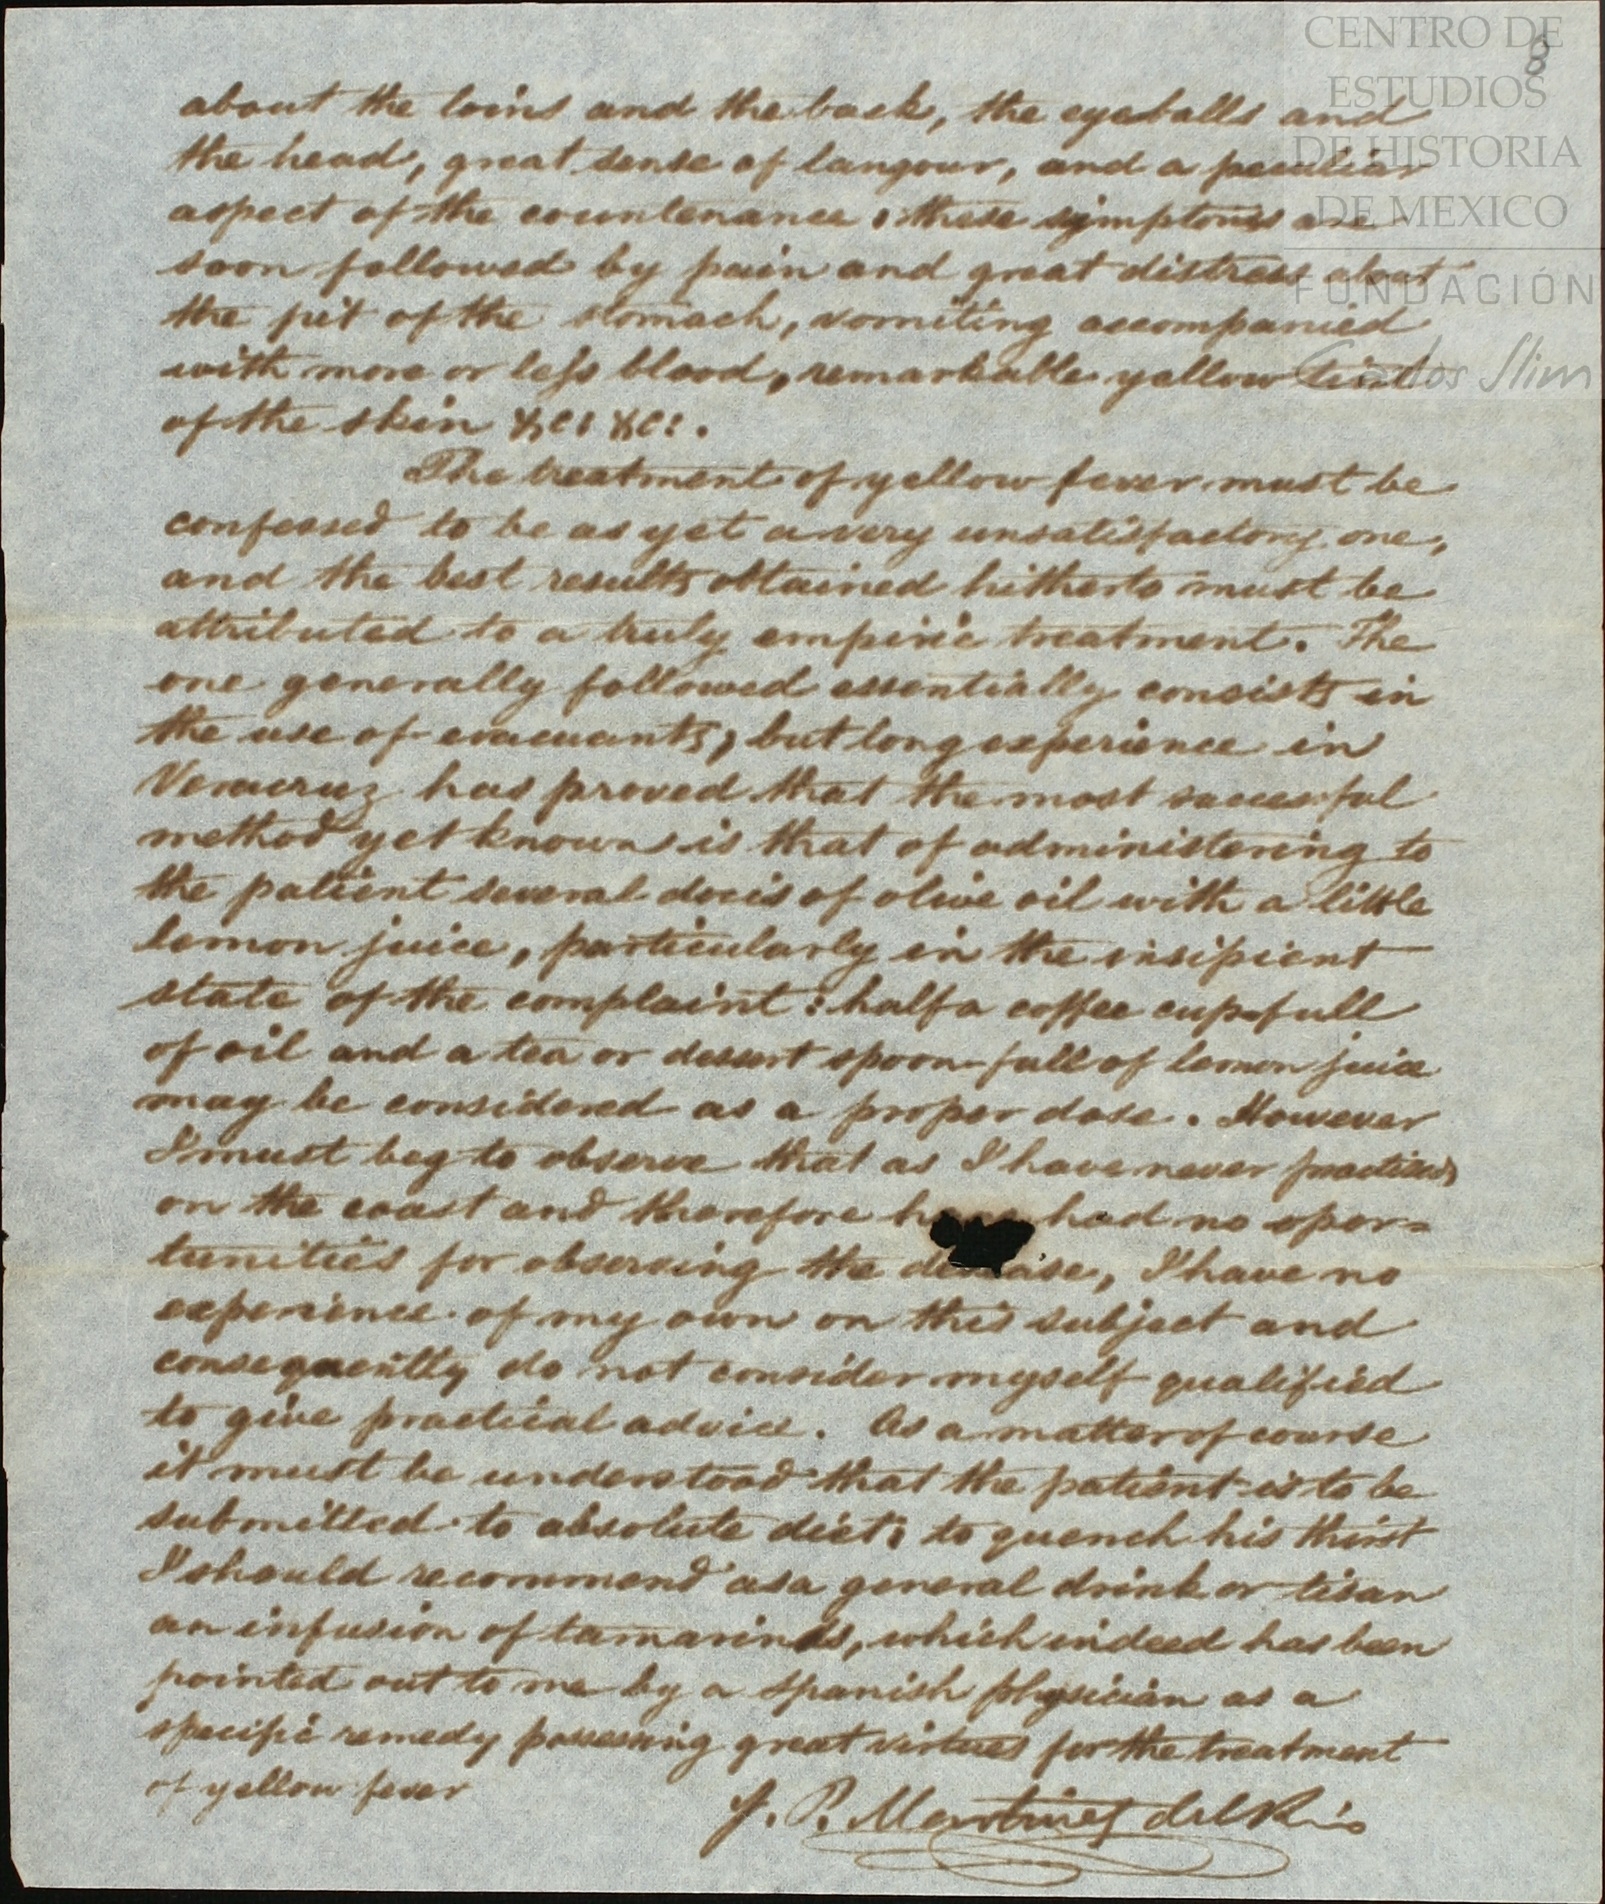 CENTRO DE
ESTUDIOS
DE HISTORIA
DE MEXICO
FUNDACIÓN
Carlos Slim
8
about the loins and the back, the eyeballs and
the head, great sense of langour, and a peculiar
aspect of the countenance; these symptoms are
soon followed by pain and great distress about
the pit of the stomach, vomiting accompanied
with more or less blood, remarkable yellow tint
of the skin &c: &c:.
The treatment of yellow fever must be
confessed to be as yet a very unsatisfactory one,
and the best results obtained hitherto must be
attributed to a truly empiric treatment. The
one generally followed essentially consists in
the use of evacuants; but long experience in
Veracruz has proved that the most succesful
method yet known is that of administering to
the patient several docis of olive oil with a little
lemon juice, particularly in the insipient
state of the complaint: half a coffee cup-full
of oil and a tea or dessert spoon-full of lemon juice
may be considered as a proper dose. However
I must beg to observe that as I have never practised
on the coast and therefore have had no opor=
tunities for observing the disease, I have no
experience of my own on this subject and
consequently do not consider myself qualified
to give practical advice. As a matter of course
it must be understood that the patient is to be
submitted to absolute diet; to quench his thirst
I should recommend as a general drink or tisan
an infusion of tamarinds, which indeed has been
pointed out to me by a Spanish physician as a
specific remedy possessing great virtues for the treatment
of yellow fever
J. P. Martinez del Rio